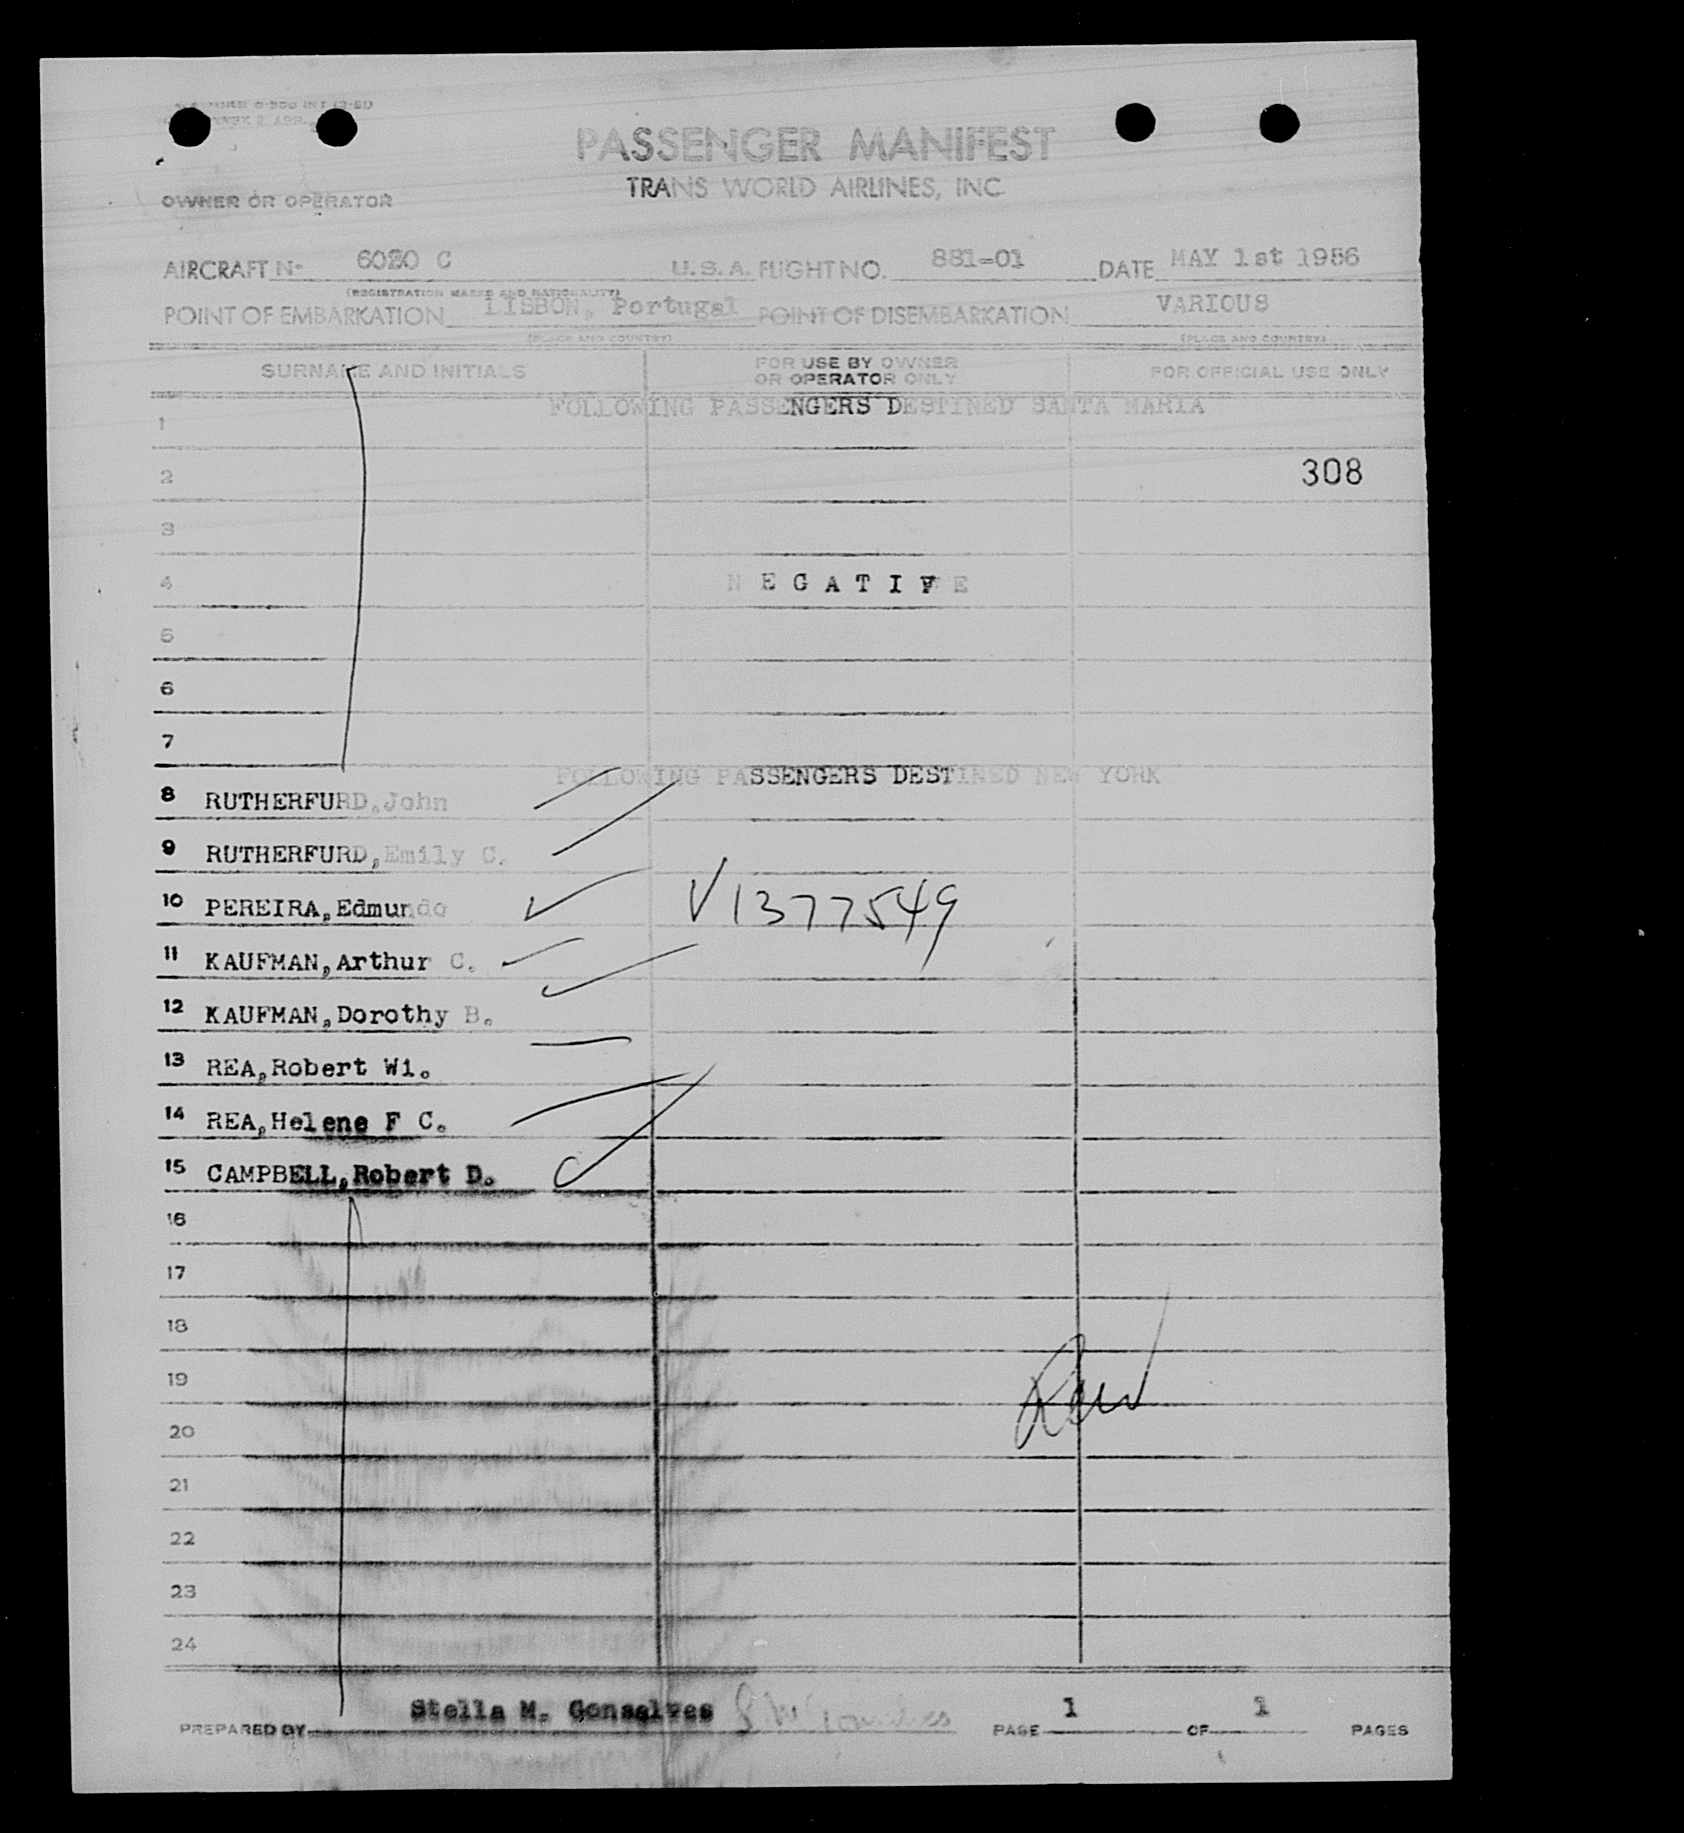 PASSENGER MANIFEST
TRANS WORLD AIRLINES, INC
OWNER OR OPERATOR
AIRCRAFT No 6020 C U.S.A. FLIGHT NO. 881-01 DATE MAY 1st 1956
(REGISTRATION MARKS AND NATIONALITY)
POINT OF EMBARKATION LISBON, Portugal POINT OF DISEMBARKATION VARIOUS
(PLACE AND COUNTRY) (PLACE AND COUNTRY)
SURNAME AND INITIALS FOR USE BY OWNER OR OPERATOR ONLY FOR OFFICIAL USE ONLY
FOLLOWING PASSENGERS DESTINED SANTA MARIA
1
2 308
3
4 N E G A T I V E
5
6
7
FOLLOWING PASSENGERS DESTINED NEW YORK
8 RUTHERFURD,John
9 RUTHERFURD,Emily C.
10 PEREIRA,Edmundo V1377549
11 KAUFMAN,Arthur C.
12 KAUFMAN,Dorothy B.
13 REA,Robert Wi.
14 REA,Helene F C.
15 CAMPBELL,Robert D.
16
17
18
19
20
21
22
23
24
PREPARED BY Stella M. Gonsalves PAGE 1 OF 1 PAGES